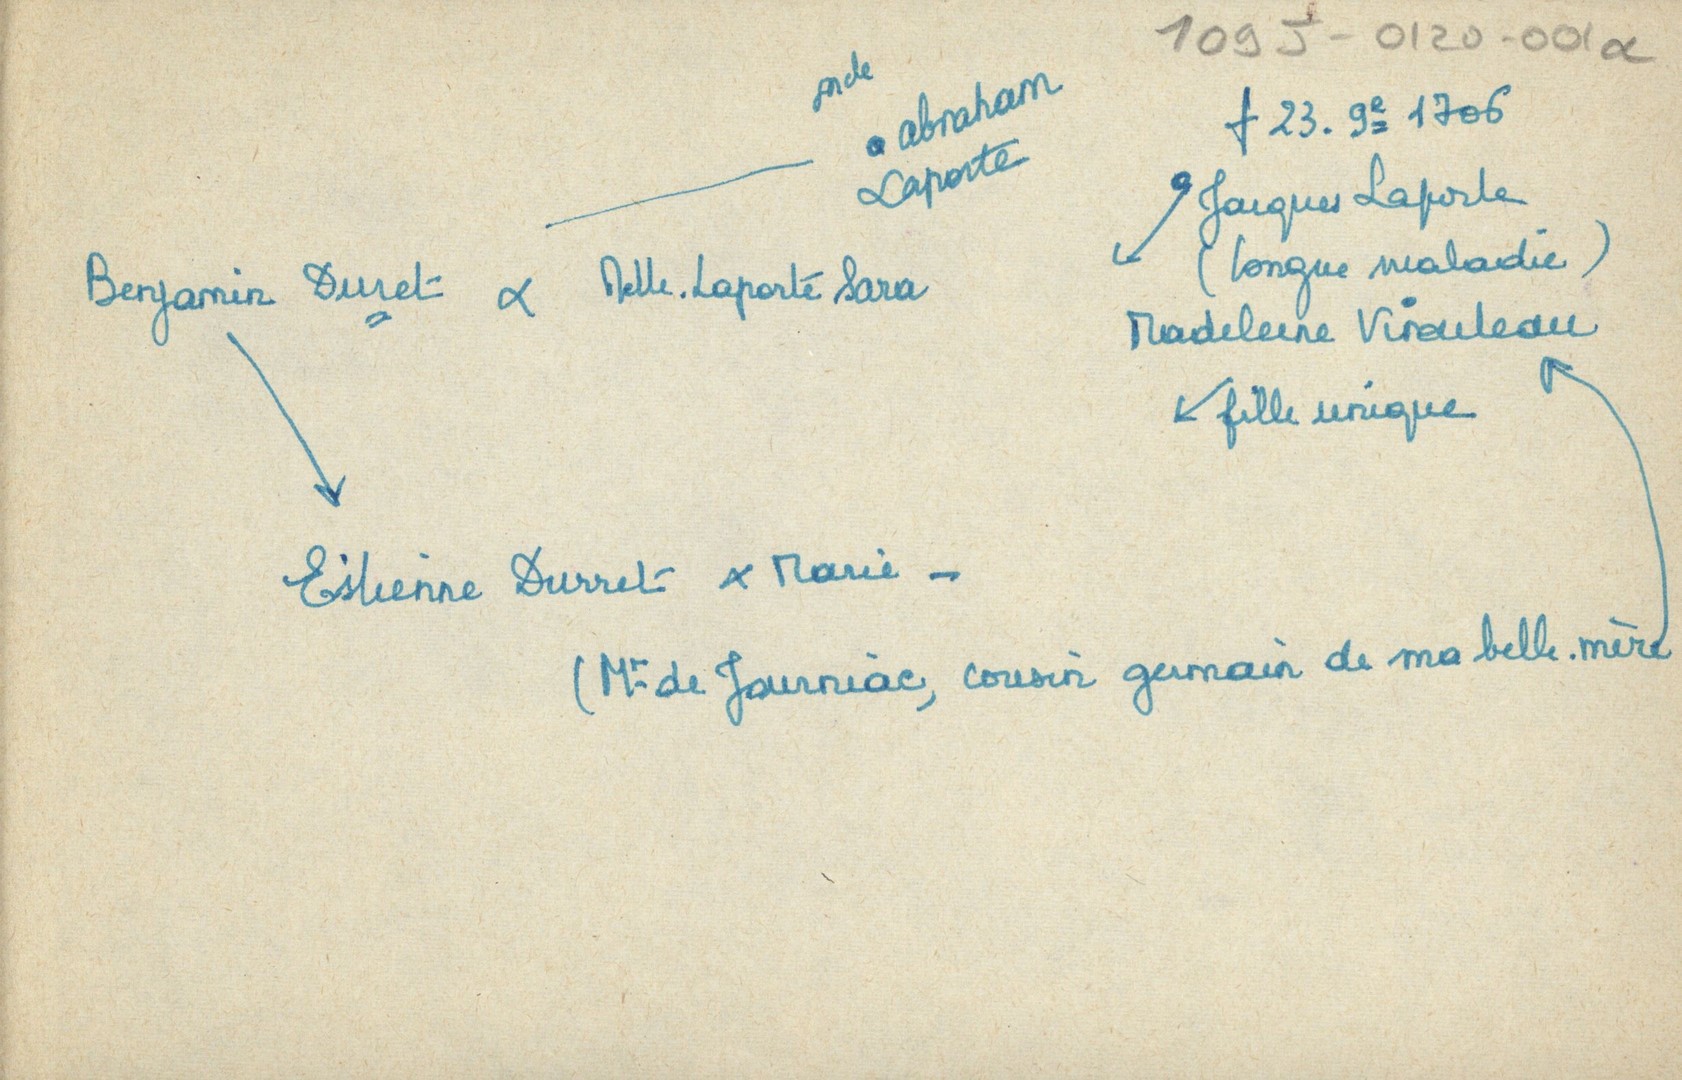 109 J - 0120 - 001 α
† 23. 9e 1706
abraham
Laporte
Jacques Laporte
(longue maladie)
Benjamin Duret α Melle. Laporte Sara
Madeleine Virouleau
fille unique
Estienne Durret x Marie -
(Mr de Journiac, cousin germain de ma belle.mère